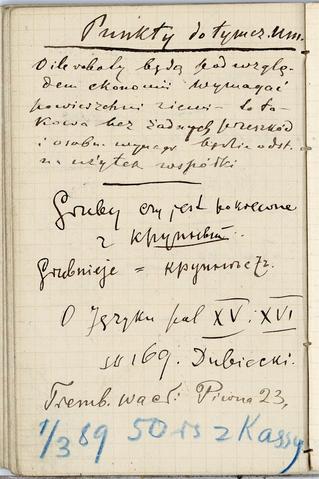 Punkty do tymcz. um.
O ile roboty będą pod wzglę-
dem ekonomii wymagać
powierzchni ziemi – to ta-
kowa bez żadnych przeszkód
i osobn. wynagr. będzie odst.
na użytek wspólki
Gruby czy jest pokrewne
z крупный
Grubnieje =
O Języku pol XV. XVI
str 169. Dubiecki.
Tremb. Wacł: Piwna 23,
1/3 89 50 rs z Kassy